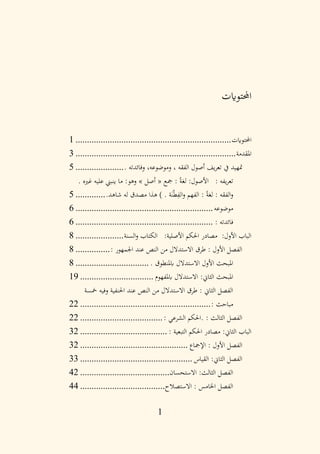 المحتويات
المحتويات ................................ 1
المقدمة ................................ 3
تمهيد في تعريف أصول الفقه ، وموضوعه، وفائدته ...................... 5
تعريفه : الأصول: لغةً : جمع « أصل » وهو: ما ينبني عليه غيره .
والفقه : لغةً : الفهم والفِطْنة . ) هذا مصدق له شاهد. ............. 5
موضوعه ................................ 6
فائدته : ................................ 6
الباب الأول: مصادر الحكم الأصلية: الكتاب والسنة ..................... 8
الفصل الأول : طرق الاستدلال من النص عند الجمهور : ............... 8
المبحث الأول الاستدلال بالمنطوق . ................................ 8
المبحث الثاني: الاستدلال بالمفهوم ................................ 19
الفصل الثاني : طرق الاستدلال من النص عند الحنفية وفيه خمسة
مباحث : ................................ 22
الفصل الثالث : .الحكم الشرعي : ................................ 22
الباب الثاني: مصادر الحكم التبعية : ................................ 32
الفصل الأول : الإجماع ................................ 32
الفصل الثاني: القياس ................................ 33
الفصل الثالث: الاستحسان ................................ 42
الفصل الخامس : الاستصلاح ................................ 44
1